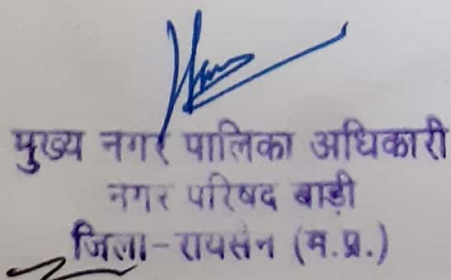 मुख्य नगर पालिका अधिकारी
नगर परिषद बाड़ी
जिला-रायसेन (म.प्र.)